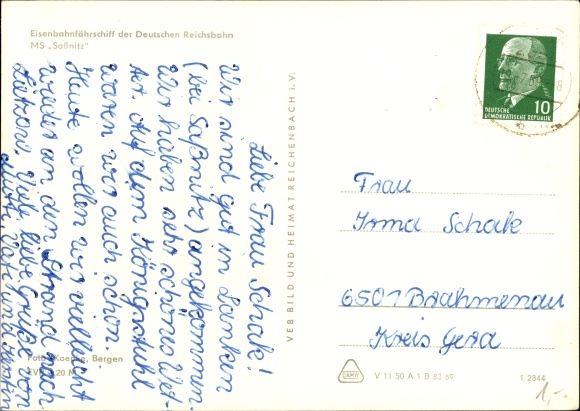 Eisenbahnfährschiff der Deutschen Reichsbahn
MS „Saßnitz"
Liebe Frau Schak!
Wir sind gut in Lanken
(bei Saßnitz) angekommen.
Wir haben sehr schönes Wet-
ter. Auf dem Königsstuhl
waren wir auch schon.
Heute wollen wir vielleicht
wieder an den Strand nach
Lietzow. Viele liebe Grüße von
Vati und
Foto: Koepke, Bergen
20 M
VEB BILD UND HEIMAT REICHENBACH i. V.
DEUTSCHE
DEMOKRATISCHE REPUBLIK
10
Frau
Irma Schak
6501 Brahmenau
Kreis Gera
V 11 50 A 1 B 83 69
1, 2844
1,-